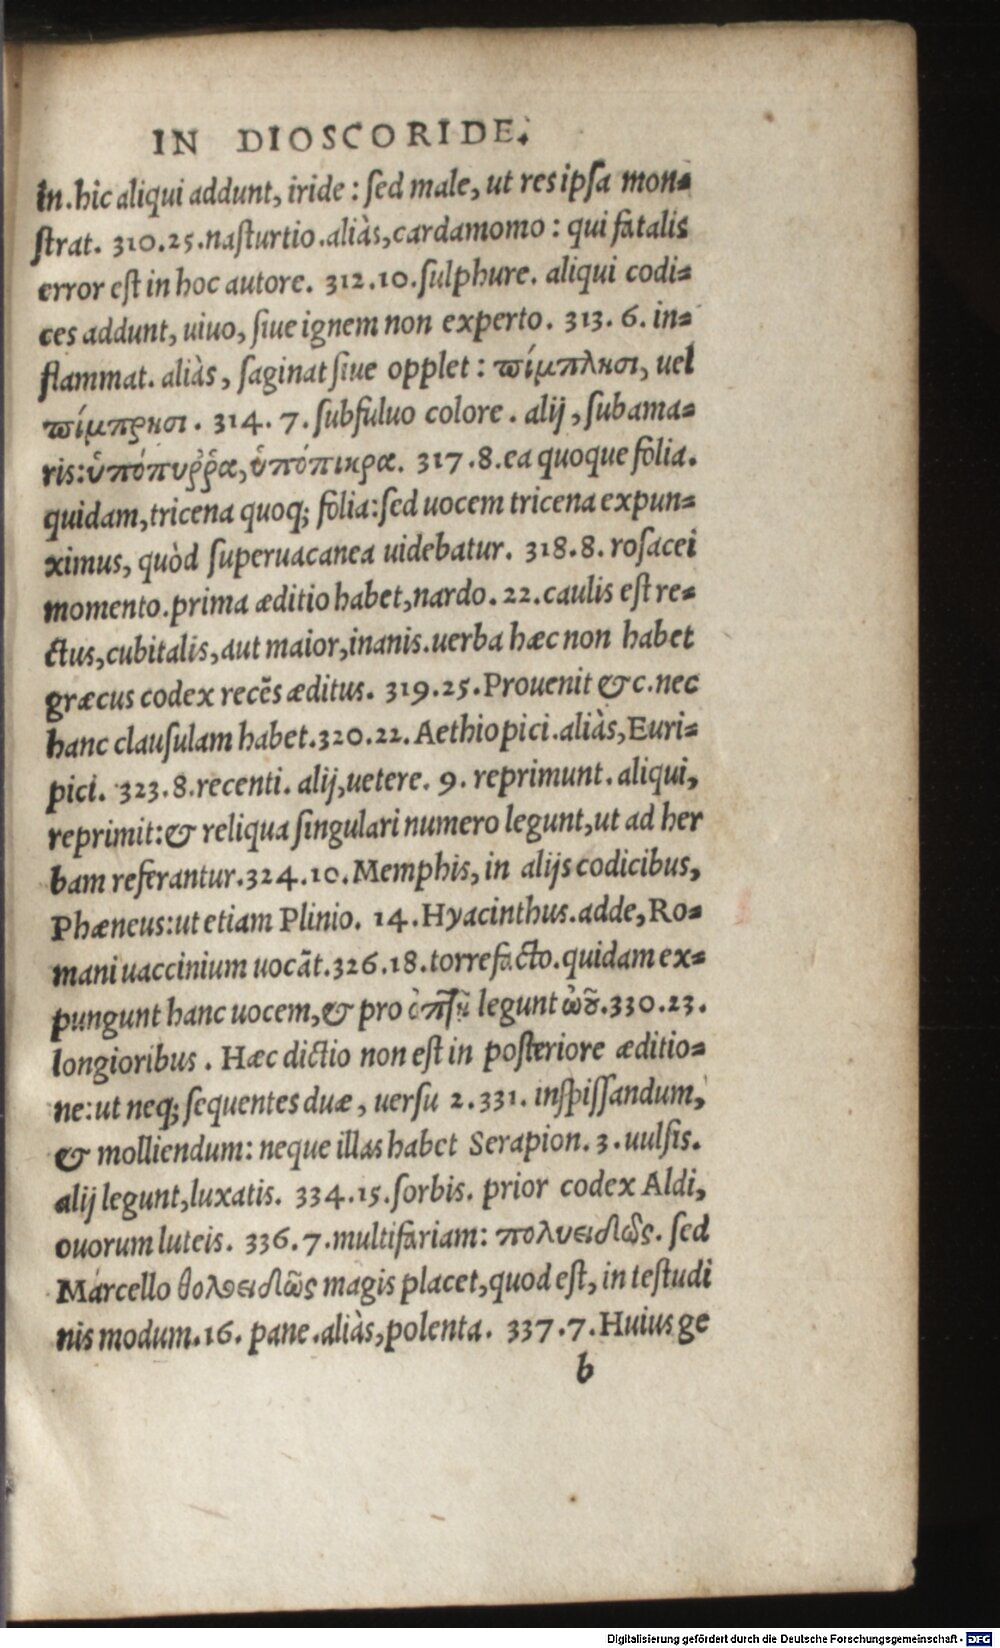 IN DIOSCORIDE.
in.hic aliqui addunt, iride : sed male, ut res ipsa mon-
strat. 310.25.nasturtio.aliàs,cardamomo : qui fatalis
error est in hoc autore. 312.10.sulphure. aliqui codi-
ces addunt, uiuo, siue ignem non experto. 313. 6. in-
flammat. aliàs, saginat siue opplet : πίμπλησι, uel
πίμπρησι. 314. 7. subfuluo colore. alij, subama-
ris:ὑπόπυῤῥα, ὑπόπικρα. 317.8.ea quoque folia.
quidam,tricena quoq; folia:sed uocem tricena expun-
ximus, quòd superuacanea uidebatur. 318.8. rosacei
momento.prima æditio habet,nardo. 22.caulis est re-
ctus,cubitalis,aut maior,inanis.uerba hæc non habet
græcus codex recẽs æditus. 319.25.Prouenit &c.nec
hanc clausulam habet.320.22.Aethiopici.aliàs,Euri-
pici. 323.8.recenti. alij,uetere. 9. reprimunt. aliqui,
reprimit:& reliqua singulari numero legunt,ut ad her
bam referantur.324.10.Memphis, in alijs codicibus,
Phæneus:ut etiam Plinio. 14.Hyacinthus.adde,Ro-
mani uaccinium uocãt.326.18.torrefacto.quidam ex-
pungunt hanc uocem,& pro legunt ὠοῦ.330.23.
longioribus. Hæc dictio non est in posteriore æditio-
ne:ut neq; sequentes duæ, uersu 2.331. inspissandum,
& molliendum: neque illas habet Serapion. 3.uulsis.
alij legunt,luxatis. 334.15.sorbis. prior codex Aldi,
ouorum luteis. 336.7.multifariam: πολυειδῶς. sed
Marcello θολοειδῶς magis placet,quod est, in testudi
nis modum.16. pane.aliàs,polenta. 337.7.Huius ge
b
Digitalisierung gefördert durch die Deutsche Forschungsgemeinschaft - DFG